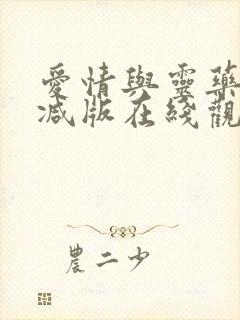 愛情與靈藥
減版在綫觀
農二少